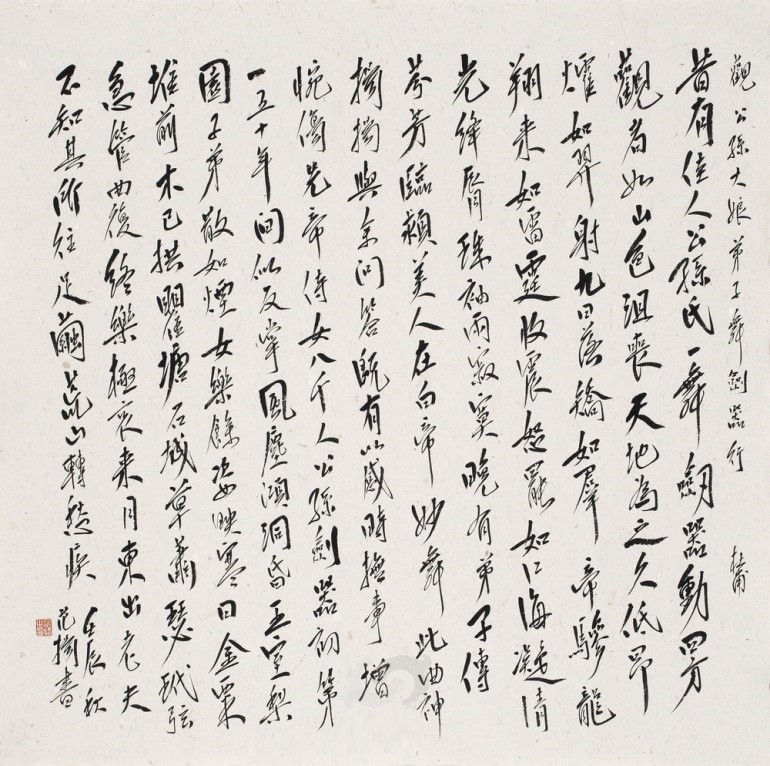 觀公孫大娘弟子舞劍器行 杜甫
昔有佳人公孫氏一舞劍器動四方
觀者如山色沮喪天地為之久低昂
燿如羿射九日落矯如羣帝驂龍
翔来如雷霆收震怒罷如江海凝清
光絳脣珠袖兩寂寞晚有弟子傳
芬芳臨潁美人在白帝妙舞此曲神
揚揚與余問答既有以感時撫事增
惋傷先帝侍女八千人公孫劍器初第
一五十年間似反掌風塵澒洞昏王室梨
園子弟散如煙女樂餘姿映寒日金粟
堆前木已拱瞿塘石城草蕭瑟玳弦
急管曲復終樂極哀来月東出老夫
不知其所往足繭荒山轉愁疾
壬辰秋
范揚書